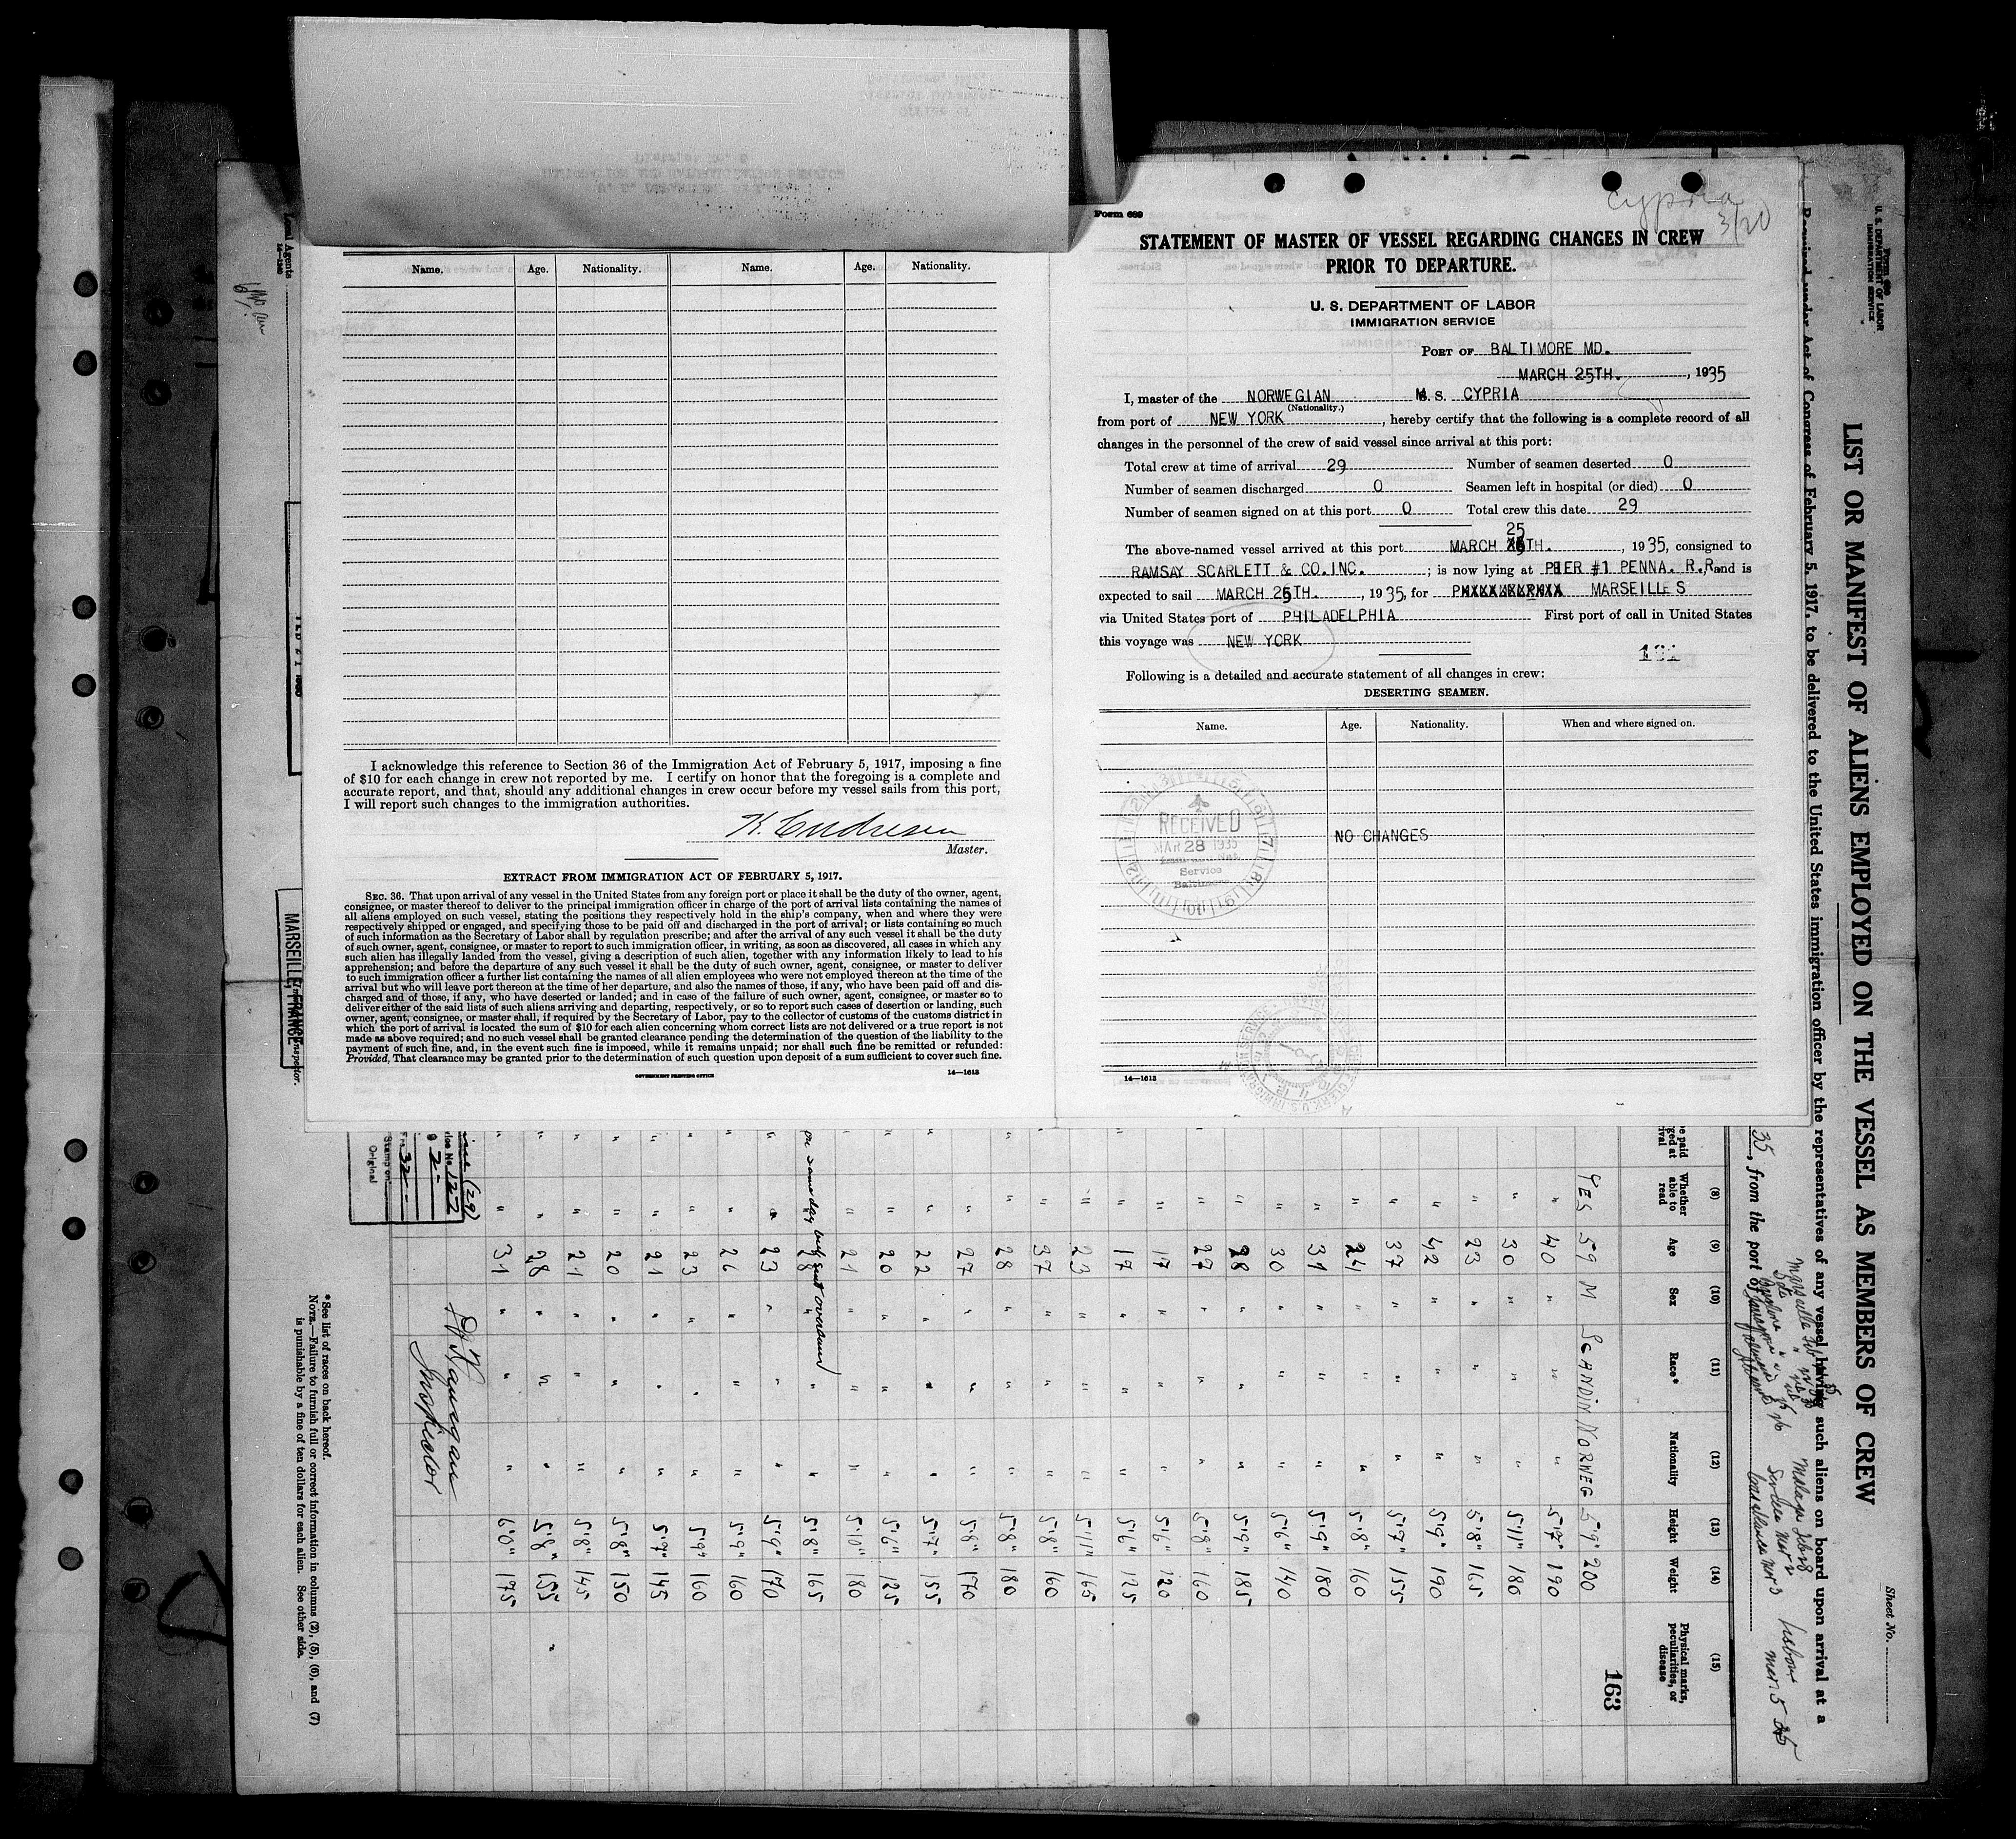 Form 689
Cypria
3/20
STATEMENT OF MASTER OF VESSEL REGARDING CHANGES IN CREW
PRIOR TO DEPARTURE.
U. S. DEPARTMENT OF LABOR
IMMIGRATION SERVICE
PORT OF BALTIMORE MD.
MARCH 25TH. , 1935
I, master of the NORWEGIAN M.S. CYPRIA
(Nationality.)
from port of NEW YORK , hereby certify that the following is a complete record of all
changes in the personnel of the crew of said vessel since arrival at this port:
Total crew at time of arrival 29 Number of seamen deserted 0
Number of seamen discharged 0 Seamen left in hospital (or died) 0
Number of seamen signed on at this port 0 Total crew this date 29
25
The above-named vessel arrived at this port MARCH TH. , 1935, consigned to
RAMSAY SCARLETT & CO.INC. ; is now lying at PIER #1 PENNA. R.R. and is
expected to sail MARCH 26TH. , 1935, for MARSEILLES
via United States port of PHILADELPHIA First port of call in United States
this voyage was NEW YORK
131
Following is a detailed and accurate statement of all changes in crew:
DESERTING SEAMEN.
Name. Age. Nationality. When and where signed on.
NO CHANGES
RECEIVED
MAR 28 1935
Service
Baltimore
14—1613
Name. Age. Nationality. Name. Age. Nationality.
I acknowledge this reference to Section 36 of the Immigration Act of February 5, 1917, imposing a fine
of $10 for each change in crew not reported by me. I certify on honor that the foregoing is a complete and
accurate report, and that, should any additional changes in crew occur before my vessel sails from this port,
I will report such changes to the immigration authorities.
K. Endresen
Master.
EXTRACT FROM IMMIGRATION ACT OF FEBRUARY 5, 1917.
SEC. 36. That upon arrival of any vessel in the United States from any foreign port or place it shall be the duty of the owner, agent,
consignee, or master thereof to deliver to the principal immigration officer in charge of the port of arrival lists containing the names of
all aliens employed on such vessel, stating the positions they respectively hold in the ship's company, when and where they were
respectively shipped or engaged, and specifying those to be paid off and discharged in the port of arrival; or lists containing so much
of such information as the Secretary of Labor shall by regulation prescribe; and after the arrival of any such vessel it shall be the duty
of such owner, agent, consignee, or master to report to such immigration officer, in writing, as soon as discovered, all cases in which any
such alien has illegally landed from the vessel, giving a description of such alien, together with any information likely to lead to his
apprehension; and before the departure of any such vessel it shall be the duty of such owner, agent, consignee, or master to deliver
to such immigration officer a further list containing the names of all alien employees who were not employed thereon at the time of the
arrival but who will leave port thereon at the time of her departure, and also the names of those, if any, who have been paid off and dis-
charged and of those, if any, who have deserted or landed; and in case of the failure of such owner, agent, consignee, or master so to
deliver either of the said lists of such aliens arriving and departing, respectively, or so to report such cases of desertion or landing, such
owner, agent, consignee, or master shall, if required by the Secretary of Labor, pay to the collector of customs of the customs district in
which the port of arrival is located the sum of $10 for each alien concerning whom correct lists are not delivered or a true report is not
made as above required; and no such vessel shall be granted clearance pending the determination of the question of the liability to the
payment of such fine, and, in the event such fine is imposed, while it remains unpaid; nor shall such fine be remitted or refunded:
Provided, That clearance may be granted prior to the determination of such question upon deposit of a sum sufficient to cover such fine.
GOVERNMENT PRINTING OFFICE 14—1613
Form 689
U. S. DEPARTMENT OF LABOR
IMMIGRATION SERVICE
Sheet No.
LIST OR MANIFEST OF ALIENS EMPLOYED ON THE VESSEL AS MEMBERS OF CREW
Required under Act of Congress of February 5, 1917, to be delivered to the United States immigration officer by the representatives of any vessel having such aliens on board upon arrival at a
35, from the port of
163
(8) (9) (10) (11) (12) (13) (14) (15)
Whether able to read Age Sex Race* Nationality Height Weight Physical marks, peculiarities, or disease
YES 59 M SCANDIN NORWEG 5'9" 200
" 40 " " " 5'7" 190
" 30 " " " 5'11" 180
" 23 " " " 5'8" 165
" 42 " " " 5'9" 190
" 37 " " " 5'7" 155
" 24 " " " 5'8" 160
" 31 " " " 5'9" 180
" 30 " " " 5'6" 140
" 28 " " " 5'9" 185
" 27 " " " 5'8" 160
" 17 " " " 5'6" 120
" 17 " " " 5'6" 125
" 23 " " " 5'11" 165
" 37 " " " 5'8" 160
" 28 " " " 5'8" 180
" 27 " " " 5'8" 170
" 22 " " " 5'7" 155
" 20 " " " 5'6" 125
" 21 " " " 5'10" 180
" 28 " " " 5'8" 165
" 23 " " " 5'9" 170
" 26 " " " 5'9" 160
" 23 " " " 5'9" 160
" 21 " " " 5'7" 145
" 20 " " " 5'8" 150
" 21 " " " 5'8" 145
" 28 " " " 5'8" 155
" 31 " " " 6'0" 175
Inspector
(29)
122
Stamp on
Original
* See list of races on back hereof.
NOTE.—Failure to furnish full or correct information in columns (2), (5), (6), and (7)
is punishable by a fine of ten dollars for each alien. See other side.
Local Agents
MARSEILLE, FRANCE